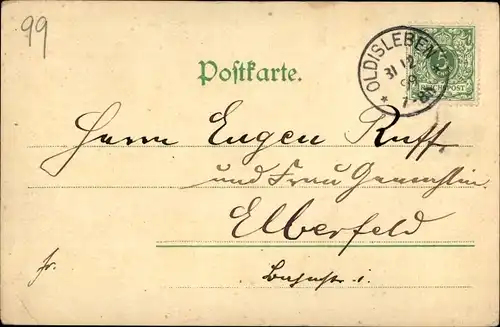 99
OLDISLEBEN
31 12
99
7-8N
REICHSPOST
Postkarte.
Herrn Eugen Ruff
und Frau
Elberfeld
fr.